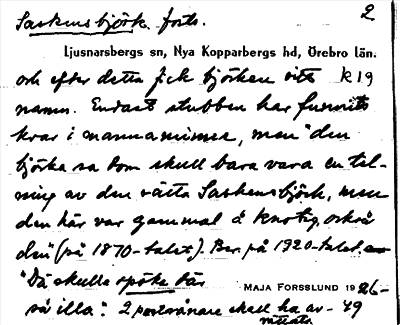 Saskensbjörk. forts. 2
Ljusnarsbergs sn, Nya Kopparbergs hd, Örebro län.
och efter detta fick björken sitt k 19
namn. Endast stubben har funnits
kvar i mannaminne, men "den
björka sa som skull bara vara en tel-
ning av den rätta Saskensbjörk, men
den här var gammal å knotig, också
den" (på 1870-talet). Ber. på 1920-talet.
"Då skulle spöke där
MAJA FORSSLUND 1926-
så illa." 2 postrånare skall ha av- 49
rättats